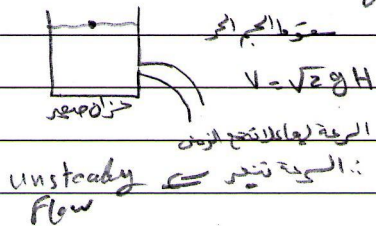 سقوط الجسم الحر
V = √2gH
خزان صغير
السرعة لها علاقة مع الزمن
∴ السرعة تتغير ⇐ unsteady
Flow